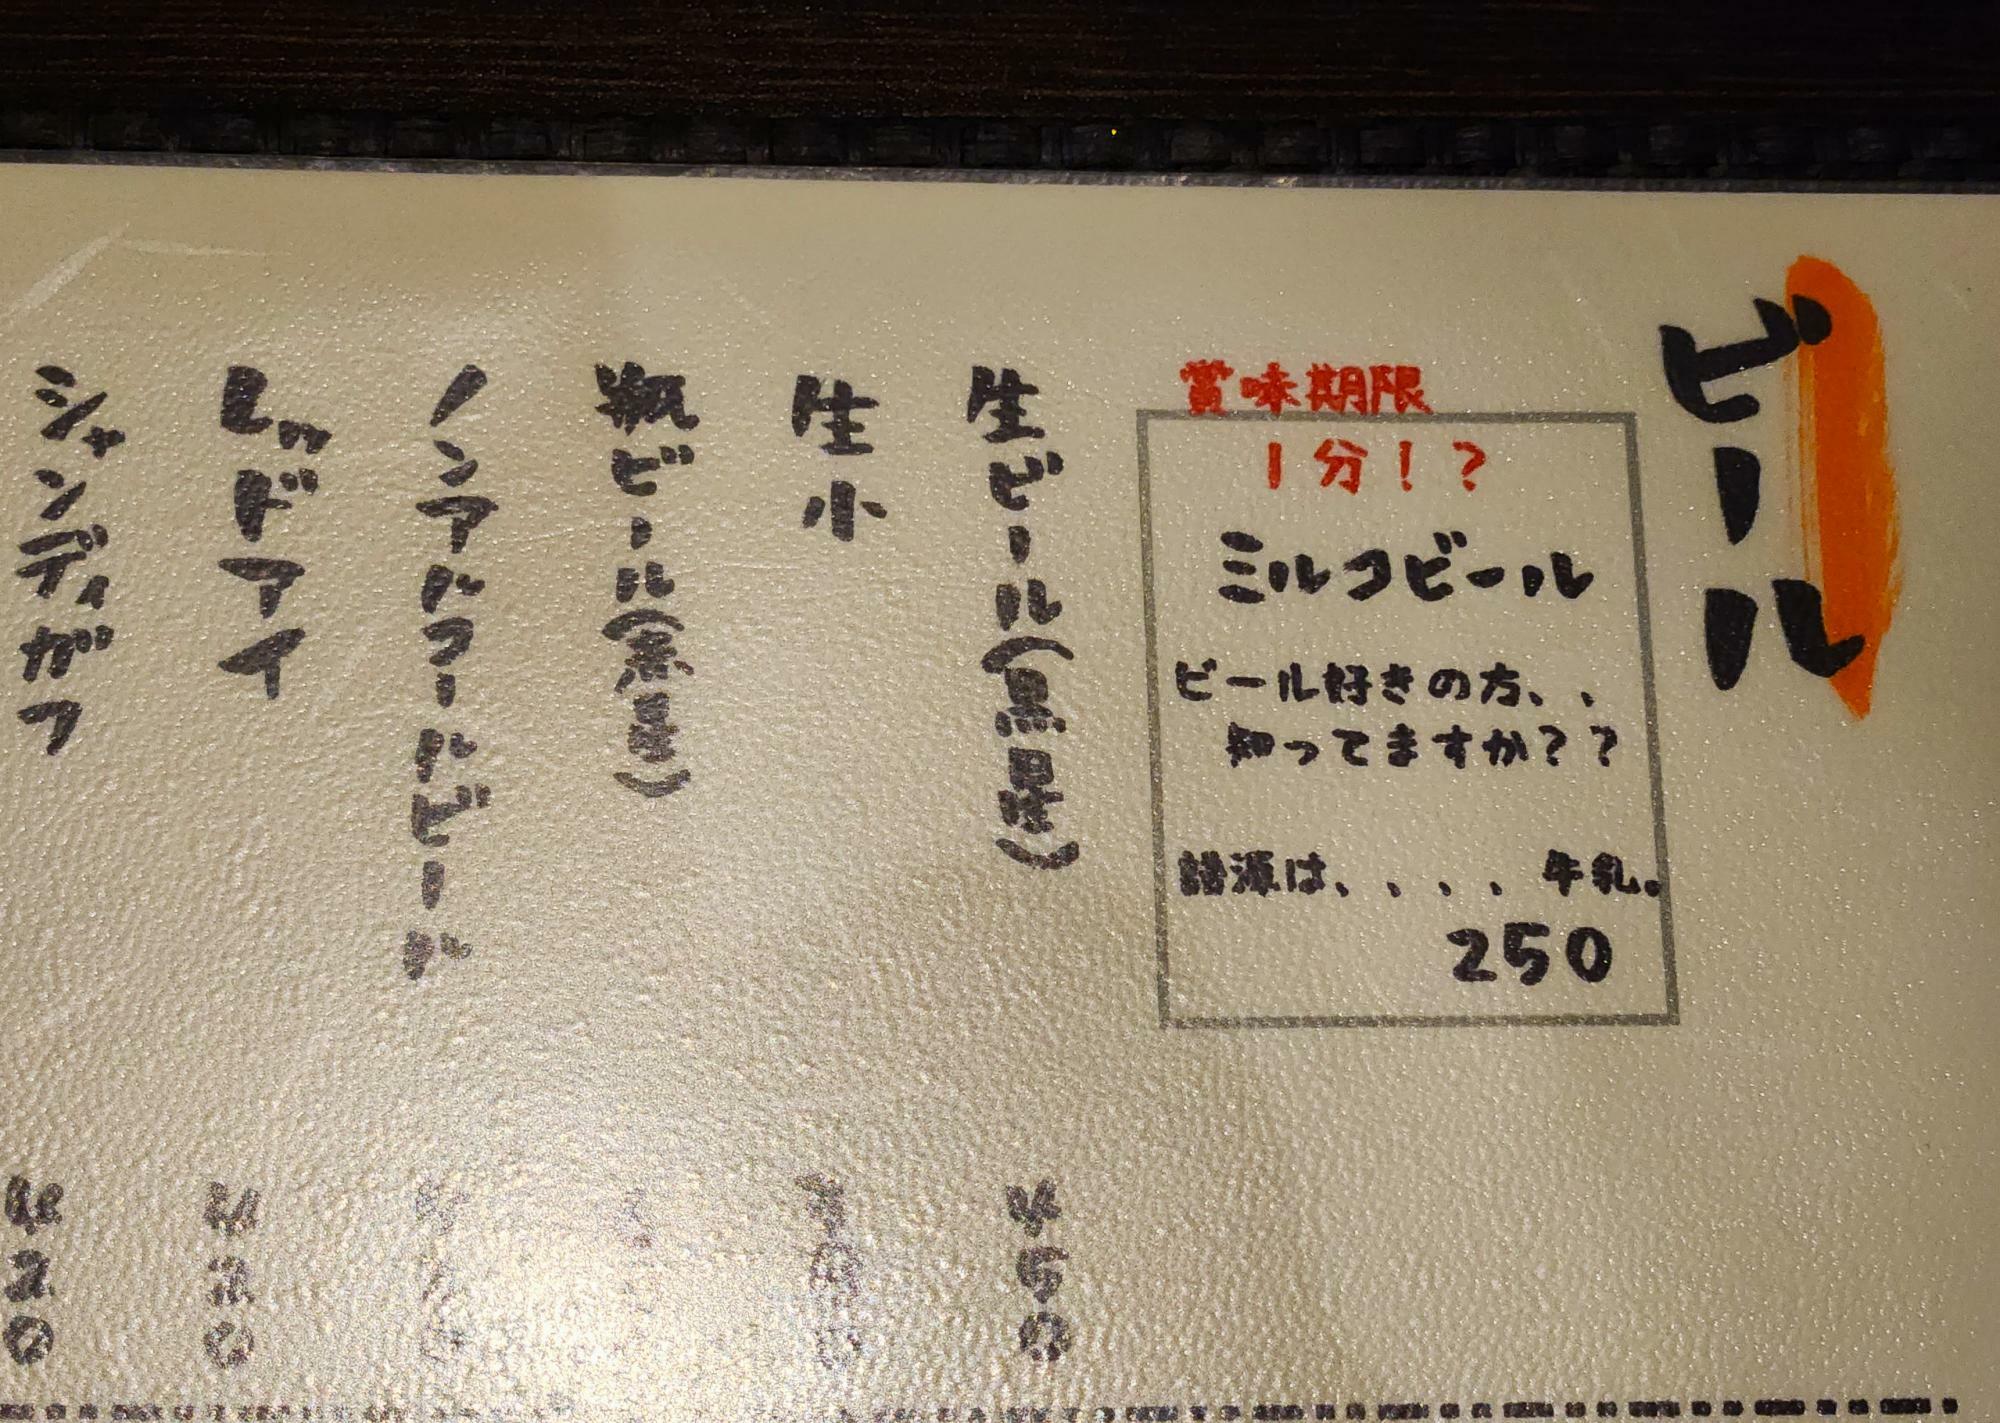 ビール
賞味期限
1分！？
ミルコビール
ビール好きの方、、
知ってますか？？
語源は、、、、牛乳。
250
生ビール(黒星)
450
生小
瓶ビール(赤星)
ノンアルコールビール
レッドアイ
420
シャンディガフ
420